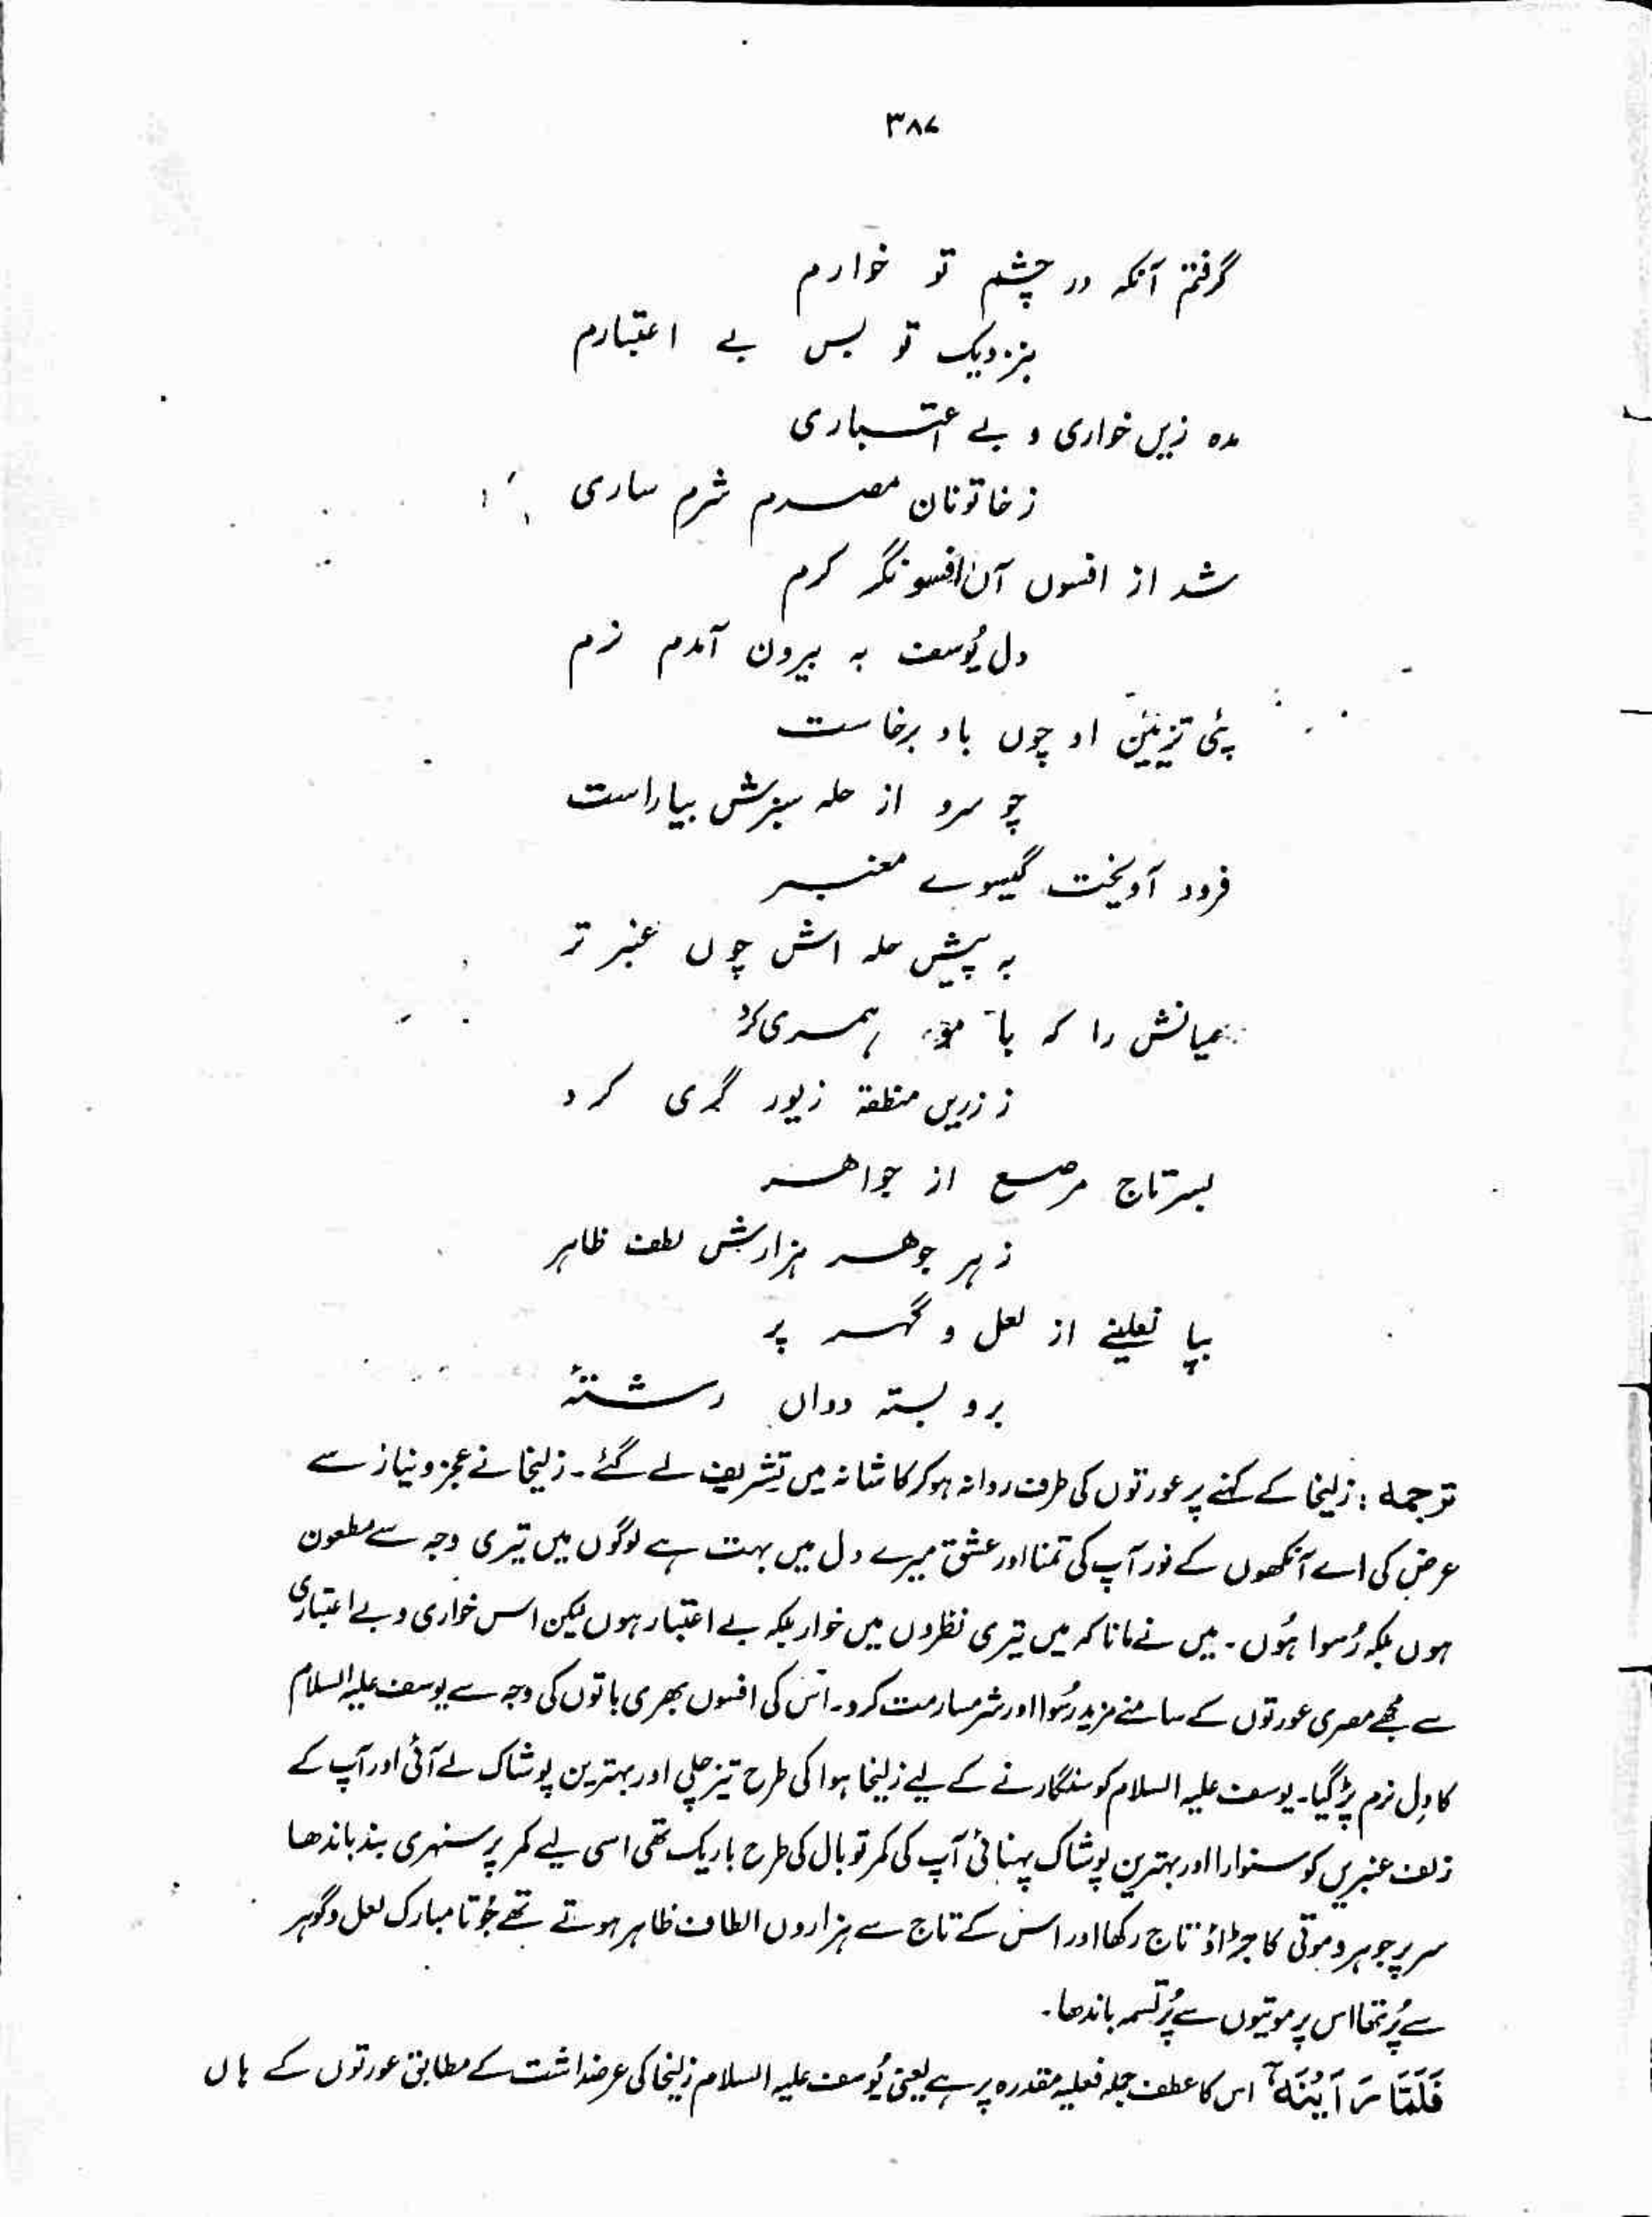 ۳۸۷
گرفتم آنکہ در چشم تو خوارم
بنزدیک تو بس بے اعتبارم
مدہ زیں خواری و بے اعتباری
ز خاتونان مصرم شرم ساری
شد از افسوں آن افسونگر گرم
دل یُوسف بہ بیرون آمدم نرم
پئی تزیئن او چوں باد برخاست
چو سرو از حلہ سبزش بیاراست
فرود آویخت گیسوے معنبر
بہ پیش حلہ اش چوں عنبر تر
میانش را کہ با مو، ہمسری کرد
ز زریں منطقۃ زیور گری کرد
بسر تاج مرصع از جواھر
ز ہر جوھر ہزارش لطف ظاہر
بپا نعلینے از لعل و گہر پر
برو بستہ دواں رشتۂ
ترجمہ : زلیخا کے کہنے پر عورتوں کی طرف روانہ ہوکر کاشانہ میں تشریف لے گئے۔ زلیخا نے عجز و نیاز سے
عرض کی اے آنکھوں کے نور آپ کی تمنا اور عشق میرے دل میں بہت ہے لوگوں میں تیری وجہ سے مطعون
ہوں بلکہ رُسوا ہُوں۔ میں نے مانا کہ میں تیری نظروں میں خوار بلکہ بے اعتبار ہوں لیکن اس خواری و بے اعتباری
سے مجھے مصری عورتوں کے سامنے مزید رُسوا اور شرمسار مت کرو۔ اس کی افسوں بھری باتوں کی وجہ سے یوسف علیہ السلام
کا دِل نرم پڑ گیا۔ یوسف علیہ السلام کو سنگارنے کے لیے زلیخا ہوا کی طرح تیز چلی اور بہترین پوشاک لے آئی اور آپ کے
زلف عنبریں کو سنوارا اور بہترین پوشاک پہنائی آپ کی کمر تو بال کی طرح باریک تھی اسی لیے کمر پر سنہری بند باندھا
سر پر جوہر و موتی کا جڑاؤ تاج رکھا اور اس کے تاج سے ہزاروں الطاف ظاہر ہوتے تھے جُوتا مبارک لعل و گوہر
سے پُر تھا اس پر موتیوں سے پُر تسمہ باندھا۔
فَلَمَّا رَاَیْنَهٗۤ اس کا عطف جملہ فعلیہ مقدرہ پر ہے یعنی یُوسف علیہ السلام زلیخا کی عرضداشت کے مطابق عورتوں کے ہاں